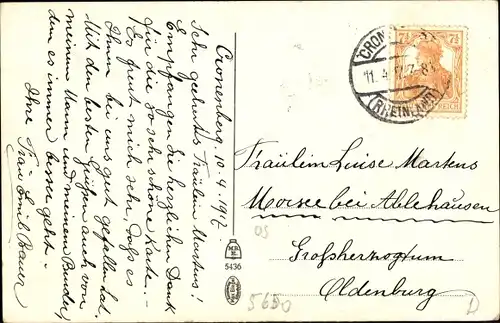 Cronenberg 10.4.1917.
Sehr geehrtes Fräulein Martens!
Empfangen die herzlichen Dank
für die so sehr schöne Karte.
Es freut mich sehr, daß es
Ihnen bei uns gut gefallen hat.
Mit den besten Grüßen auch von
meinem Mann und meinem Bruder,
dem es immer besser geht.
Ihre Frau Emil Bauer
5436
CRONENBERG
11.4.17.7-8
(RHEINLAND)
7½ 7½
REICH
Fräulein Luise Martens
Moorsee bei Abbehausen
Großherzogtum
Oldenburg
5650